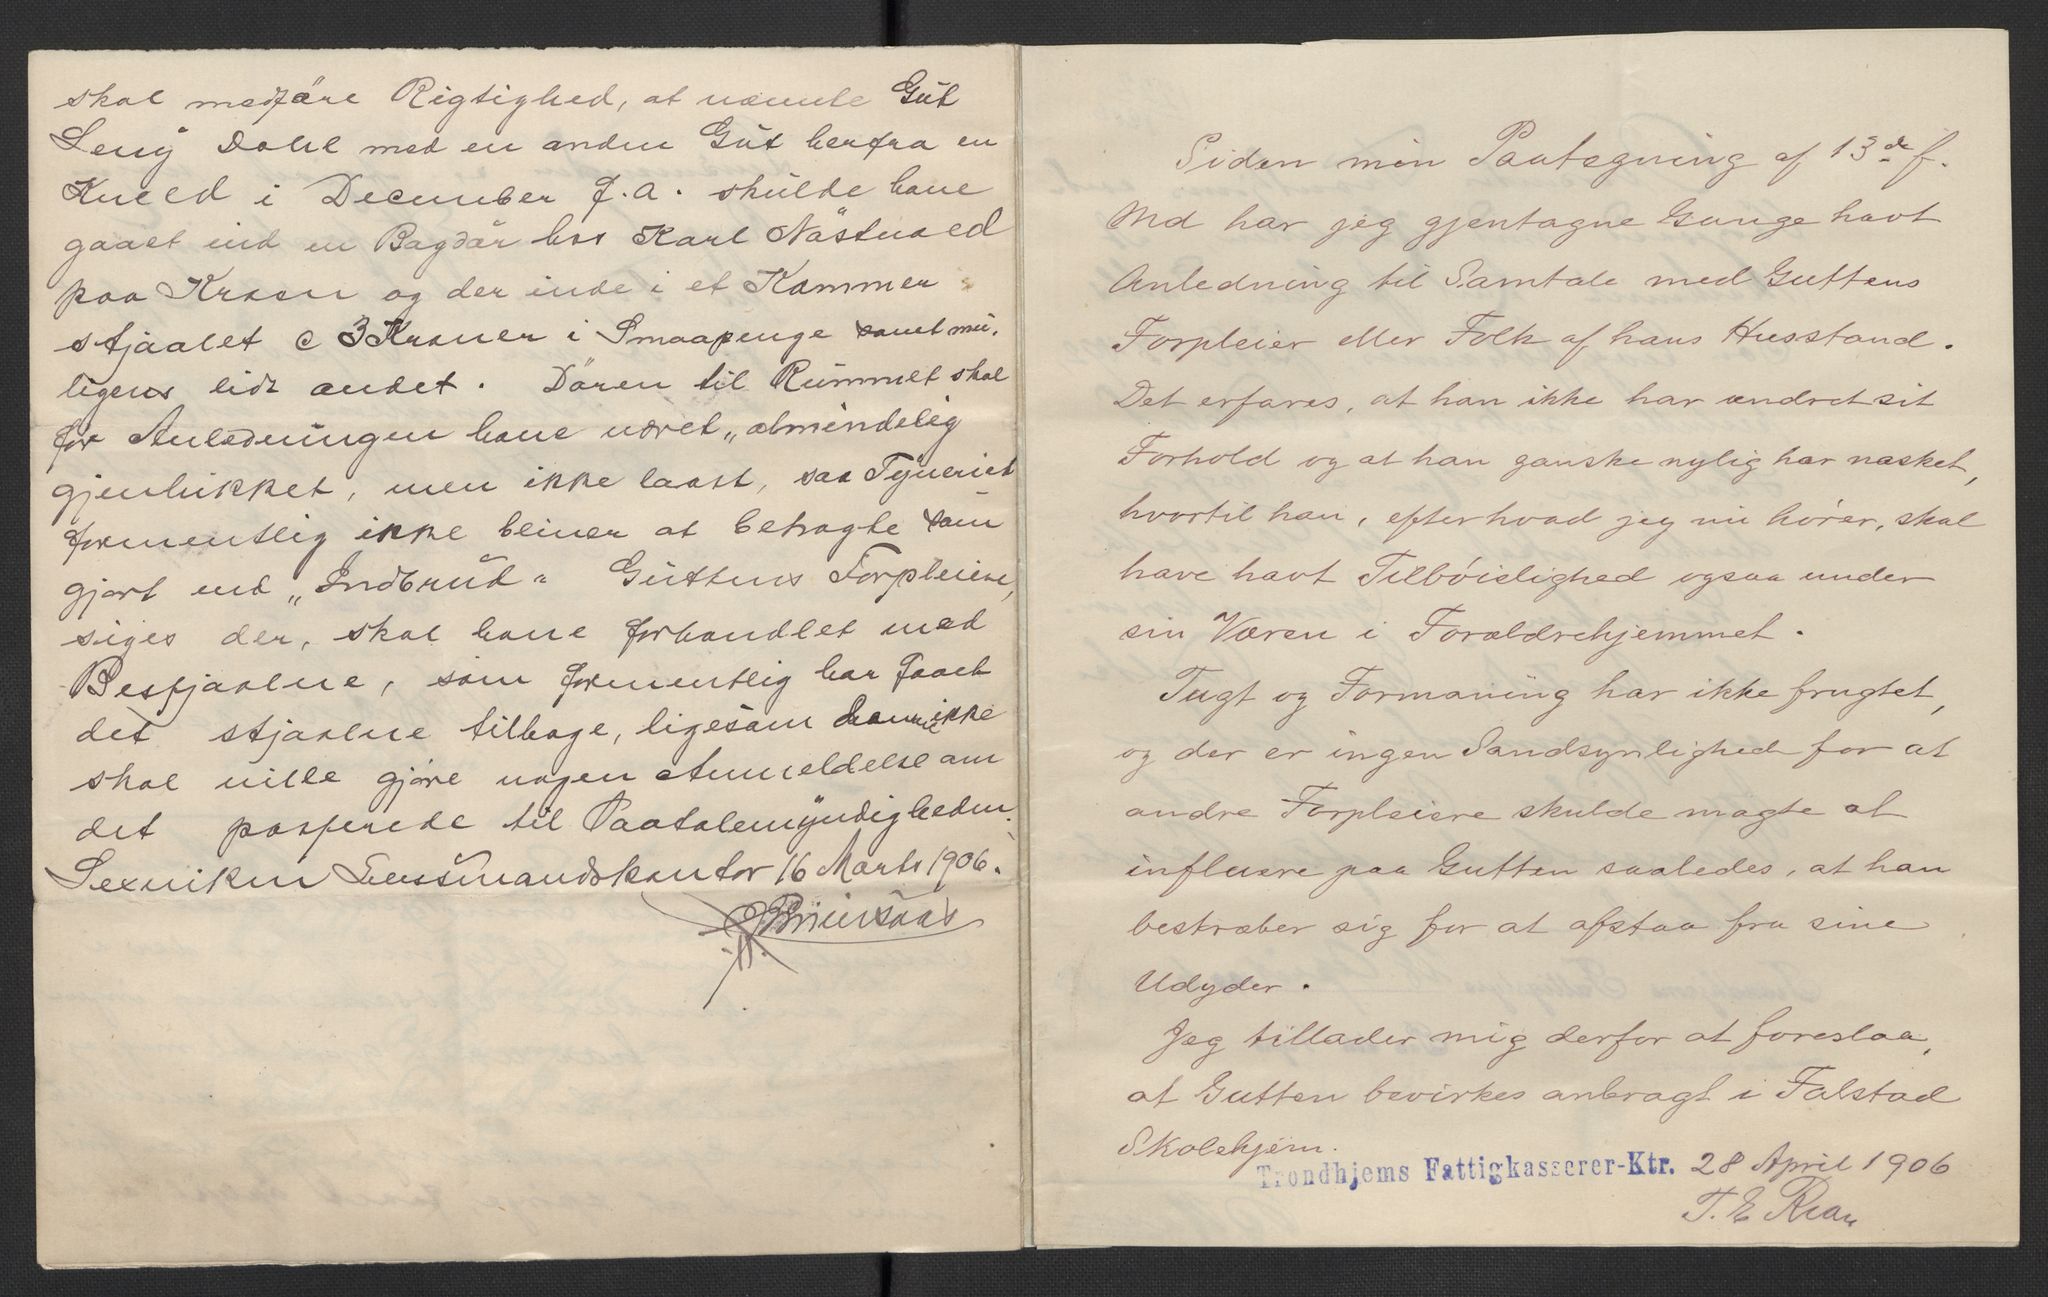 skal medføre Rigtighed, at nævnte Gut
Leny Dahl med en anden Gut herfra en
Kveld i December f. a. skulde have
gaaet ind en Bagdør hos Karl Nøstvold
paa Kroen og der inde i et Kammer
stjaalet c 3 Kroner i Smaapenge samt mu-
ligens lidt andet. Døren til Rummet skal
for Anledningen have været „almindelig
gjenlukket, men ikke laast, saa Tyveriet
formentlig ikke bliver at betragte som
gjort ved „Indbrud“ Guttens Forpleiere,
siges der, skal have forhandlet med
Bestjaalne, som formentlig har faaet
det stjaalne tilbage, ligesom han ikke
skal ville gjøre nogen Anmeldelse om
det passerede til Paatalemyndigheden.
Lexviken Lensmandskontor 16 Marts 1906.
Siden min Paategning af 13de f.
Md har jeg gjentagne Gange havt
Anledning til Samtale med Guttens
Forpleier eller Folk af hans Husstand.
Det erfares, at han ikke har ændret sit
Forhold og at han ganske nylig har nasket,
hvortil han, efter hvad jeg nu hører, skal
have havt Tilbøielighed ogsaa under
sin Væren i Forældrehjemmet.
Tugt og Formaning har ikke frugtet,
og der er ingen Sandsynlighed for at
andre Forpleiere skulde magte at
influere paa Gutten saaledes, at han
bestræber sig for at afstaa fra sine
Udyder.
Jeg tillader mig derfor at foreslaa,
at Gutten bevirkes anbragt i Falstad
Skolehjem.
Trondhjems Fattigkasserer-Ktr. 28 April 1906
T. E. Rian